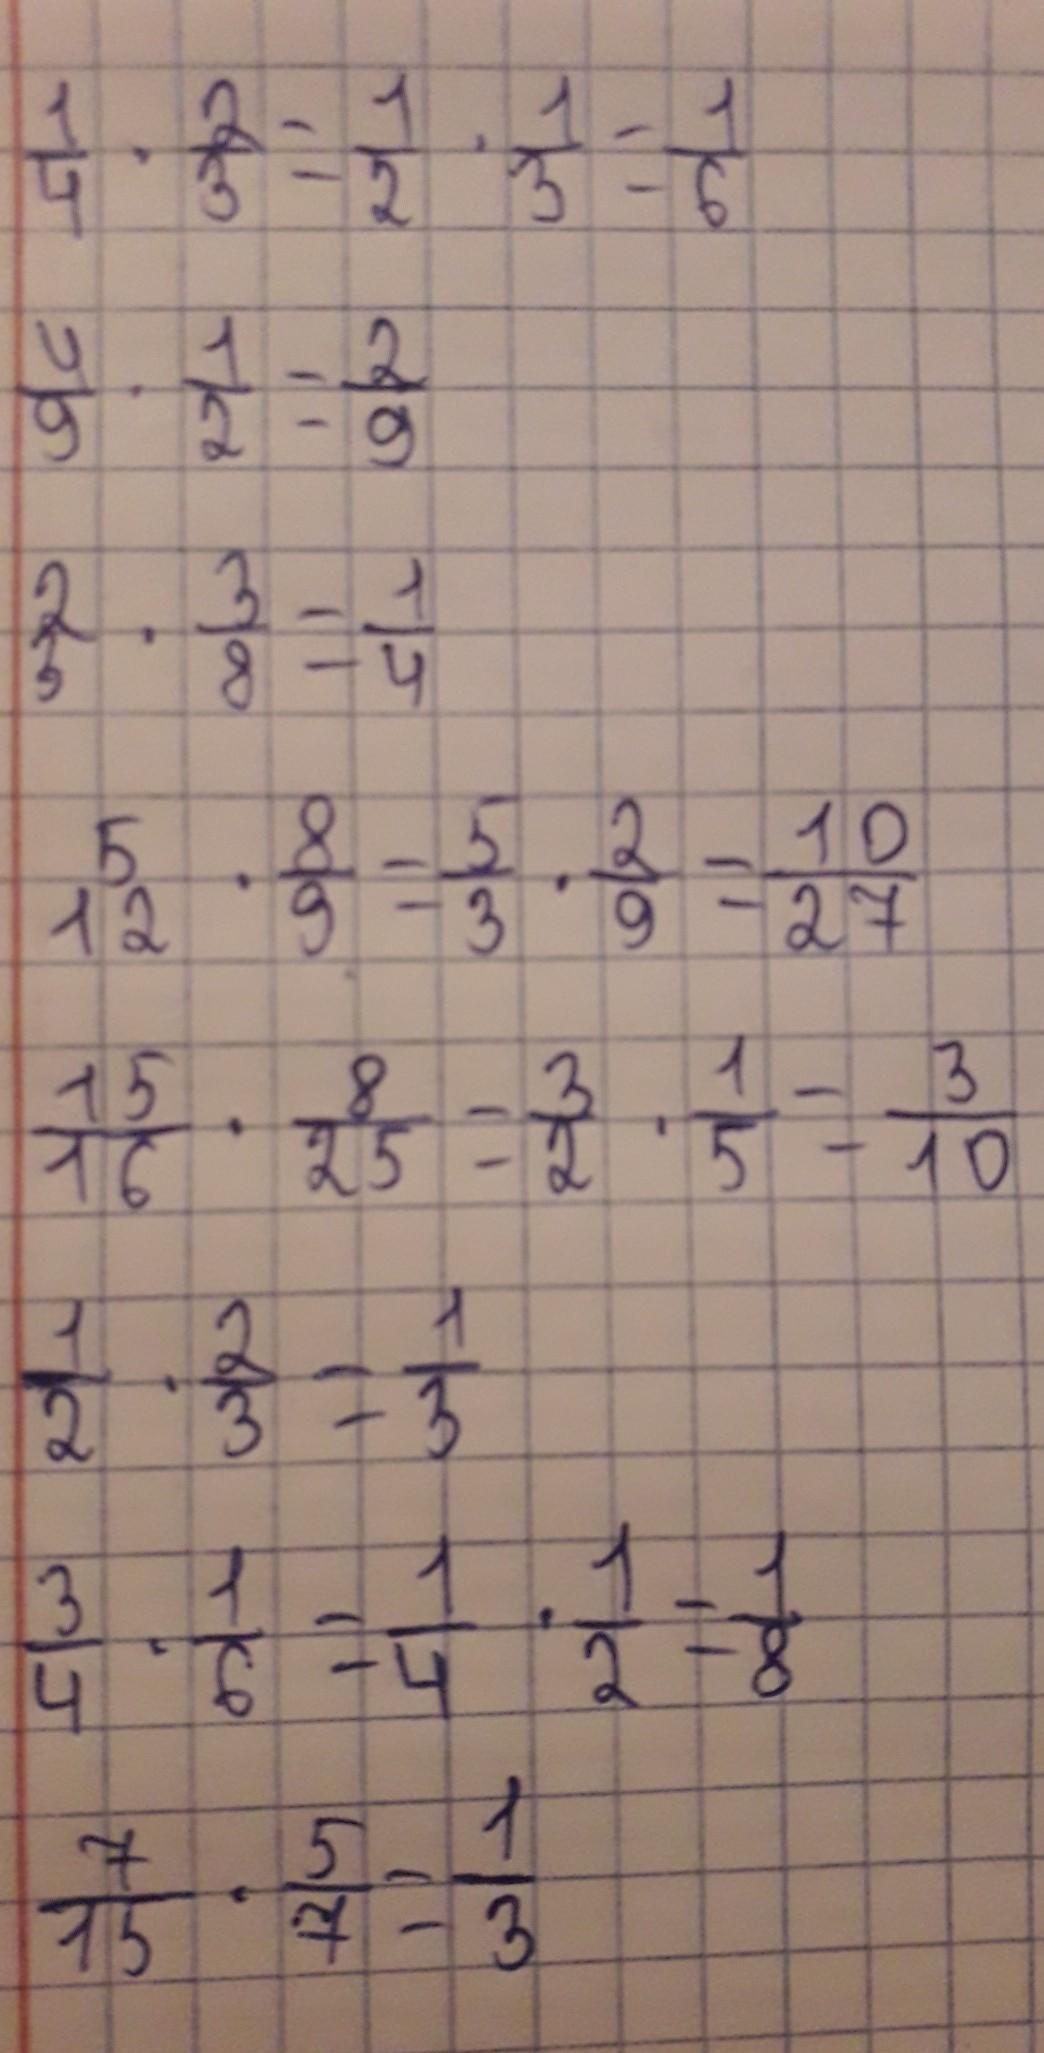 1/4 · 2/3 = 1/2 · 1/3 = 1/6
4/9 · 1/2 = 2/9
2/3 · 3/8 = 1/4
5/12 · 8/9 = 5/3 · 2/9 = 10/27
15/16 · 8/25 = 3/2 · 1/5 = 3/10
1/2 · 2/3 = 1/3
3/4 · 1/6 = 1/4 · 1/2 = 1/8
7/15 · 5/7 = 1/3